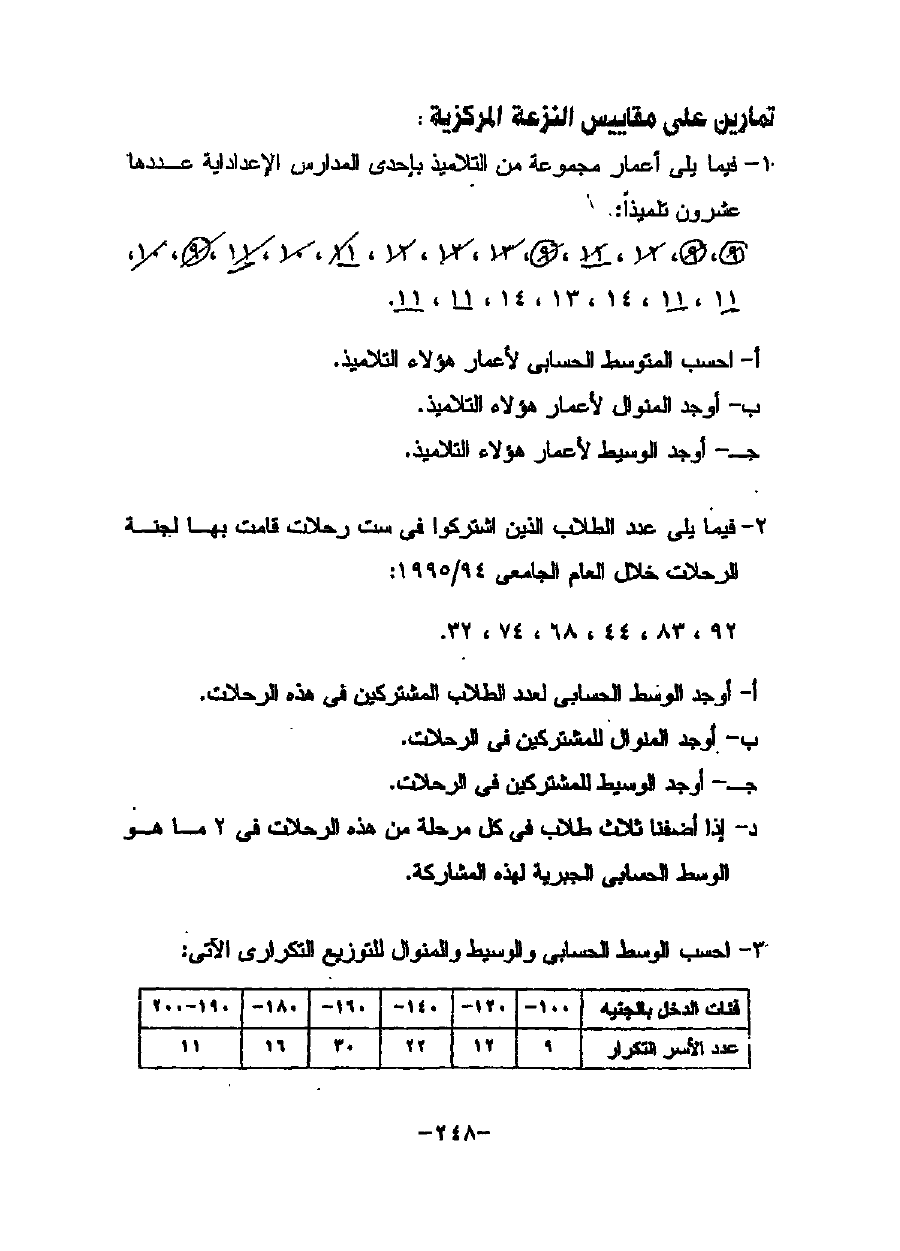 تمارين على مقاييس النزعة المركزية :
١- فيما يلى أعمار مجموعة من التلاميذ بإحدى المدارس الإعدادية عددها
عشرون تلميذاً:
٩، ٩، ١٢، ١٢، ٩، ١٣، ١٢، ١٢، ١١، ١٠، ١١، ٩، ١٠،
١١، ١١، ١٤، ١٣، ١٤، ١١، ١١.
أ- احسب المتوسط الحسابى لأعمار هؤلاء التلاميذ.
ب- أوجد المنوال لأعمار هؤلاء التلاميذ.
جـ- أوجد الوسيط لأعمار هؤلاء التلاميذ.
٢- فيما يلى عدد الطلاب الذين اشتركوا فى ست رحلات قامت بها لجنة
الرحلات خلال العام الجامعى ١٩٩٥/٩٤:
٩٢، ٨٣، ٤٤، ٦٨، ٧٤، ٣٢.
أ- أوجد الوسط الحسابى لعدد الطلاب المشتركين فى هذه الرحلات.
ب- أوجد المنوال للمشتركين فى الرحلات.
جـ- أوجد الوسيط للمشتركين فى الرحلات.
د- إذا أضفنا ثلاث طلاب فى كل مرحلة من هذه الرحلات فى ٢ ما هو
الوسط الحسابى الجبرية لهذه المشاركة.
٣- احسب الوسط الحسابى والوسيط والمنوال للتوزيع التكرارى الآتى:
فئات الدخل بالجنيه ١٠٠- ١٢٠- ١٤٠- ١٦٠- ١٨٠- ١٩٠-٢٠٠
عدد الأسر التكرار ٩ ١٢ ٢٢ ٣٠ ١٦ ١١
-٢٤٨-